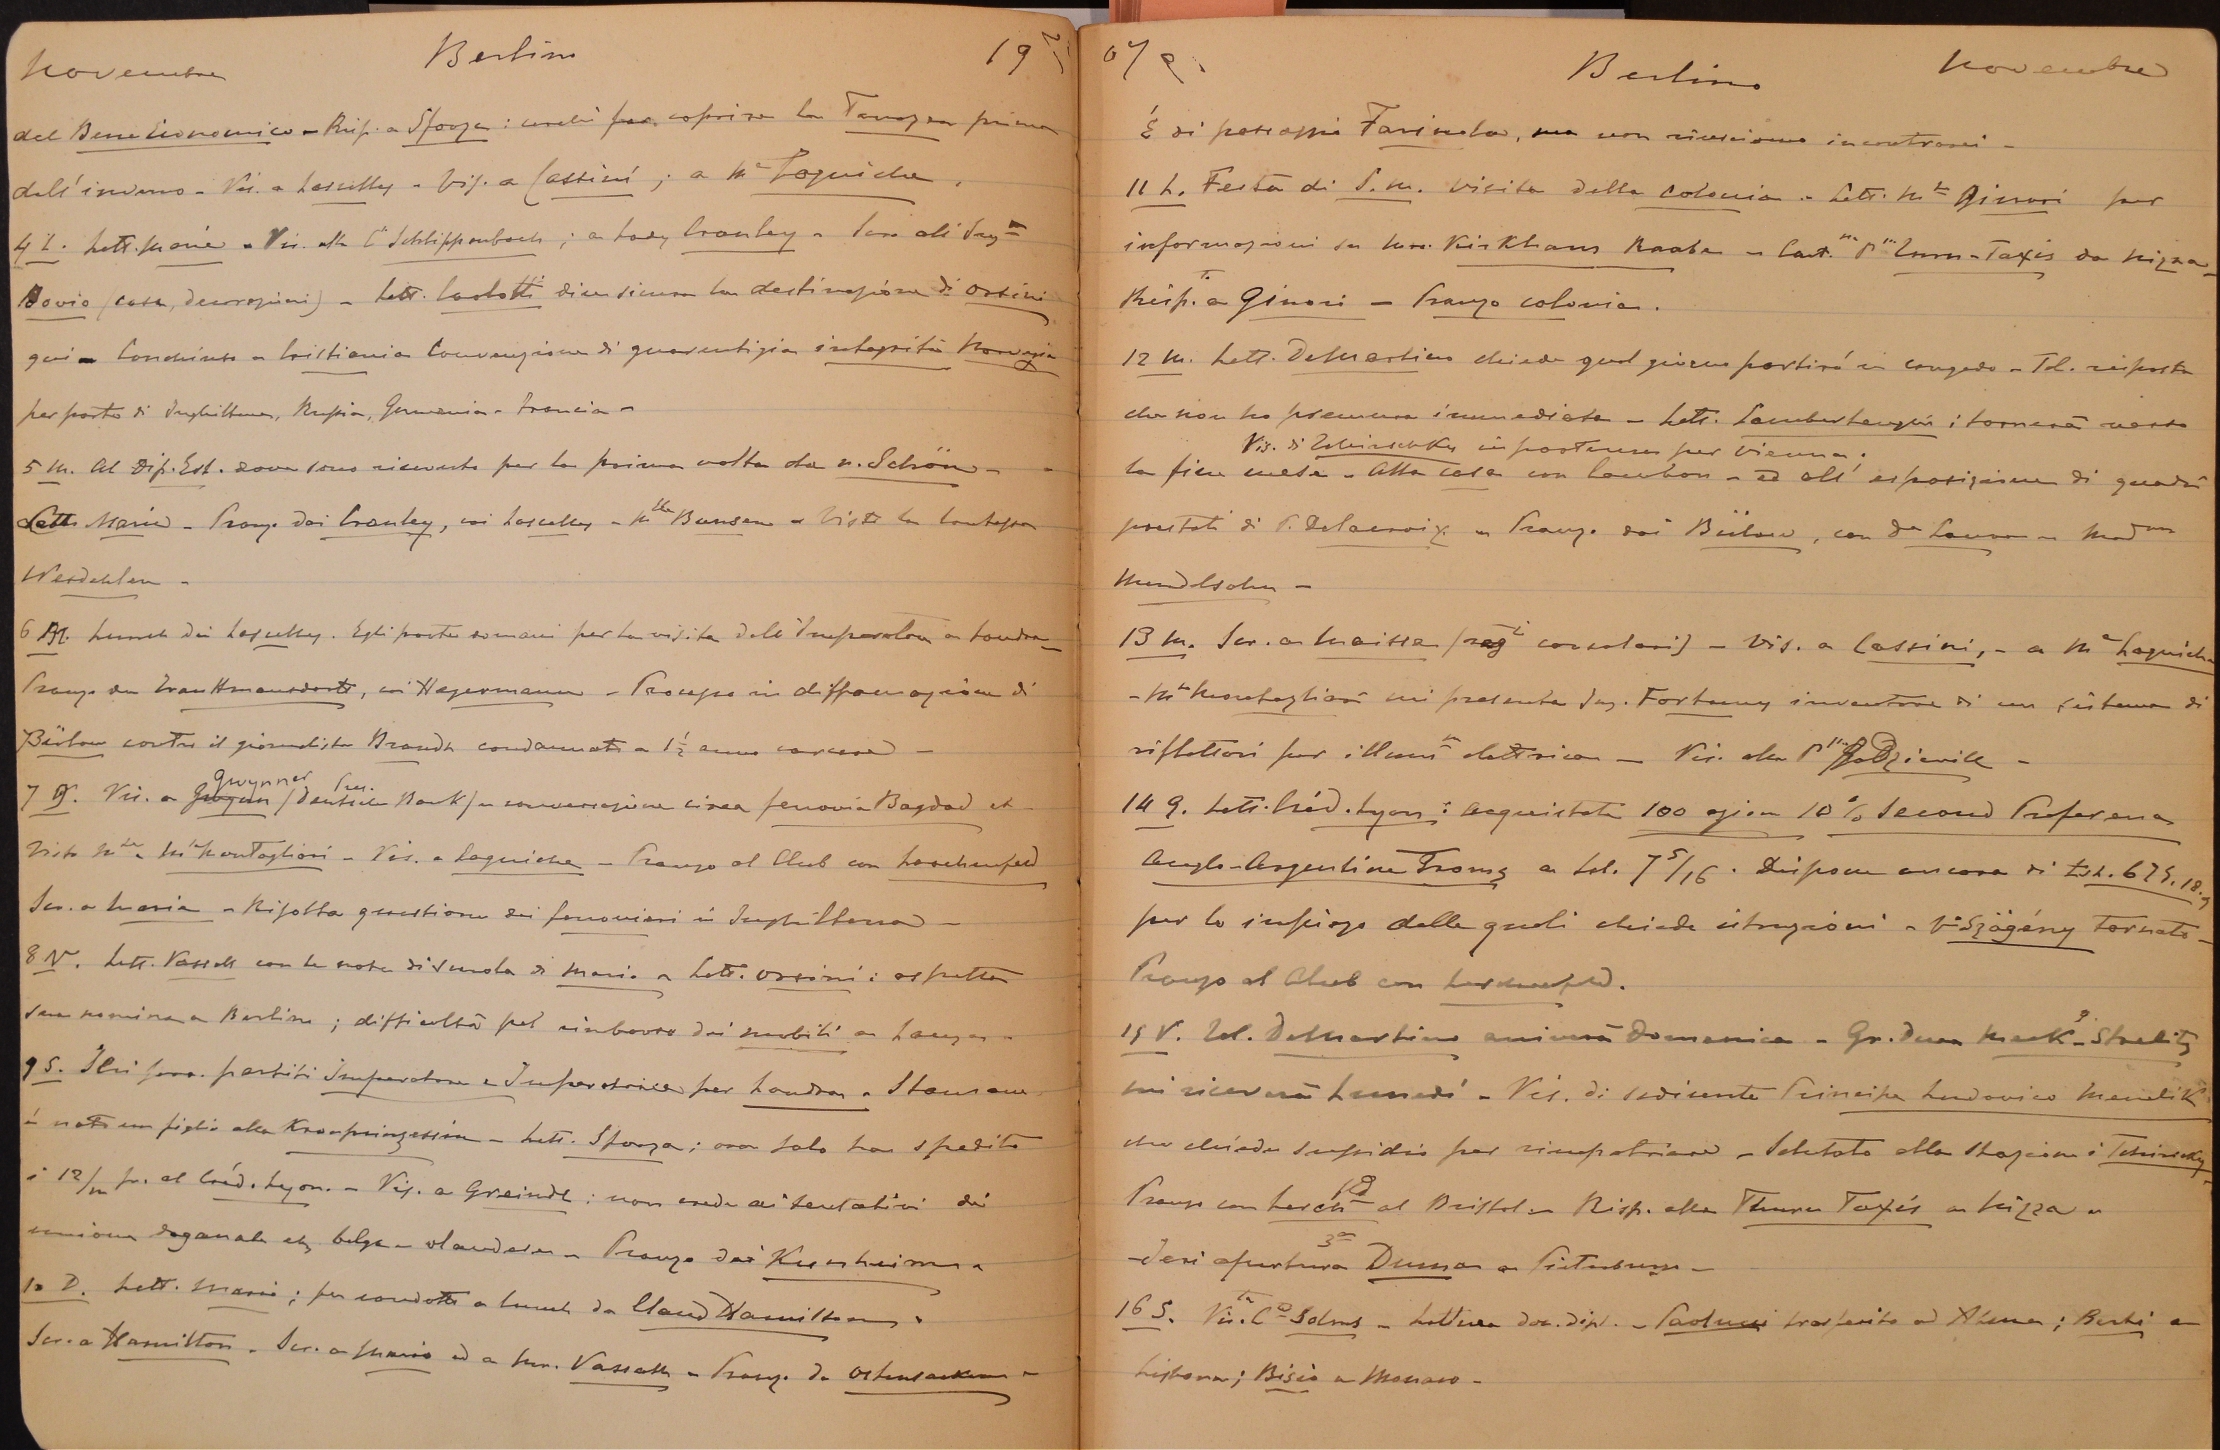 Novembre Berlino 19
del Bene Economico - Risp. a Sforza: cerchi far coprire la Terrazza prima
dell'inverno - Vis. a Lascelles - Vis. a Cassini; a Me Laguiche.
4 L. Lett. Maria - Vis. alla Css Schlippenbach; a Lady Cranley - Scr. all'Ing.
Bovio (casa, decorazioni) - Lett. Carlotti dice sicura la destinazione di Orsini
qui - Conchiusa a Cristiania Convenzione di guarentigia integrità Norvegia
per parte di Inghilterra, Russia, Germania - Francia -
5 M. Al Dip. Est. dove sono ricevuto per la prima volta da v. Schön -
Lett. Maria - Pranzo dai Cranley, coi Lascelles - Mlle Bunsen - Visto la Contessa
6 M. Lunch dai Lascelles. Egli parte domani per la visita dell'Imperatore a Londra -
Pranzo da Trauttmansdorff, coi Hagermann - Processo in diffamazione di
Bülow contro il giornalista Brandt condannato a 1 1/2 anno carcere -
7 G. Vis. a Gwynner (Deutsche Bank) - conversazione circa ferrovia Bagdad etc
Visto Mse e Msa Montagliari - Vis. a Laguiche - Pranzo al Club con Lerchenfeld
Scr. a Maria - Risolta questione dei ferrovieri in Inghilterra -
8 V. Lett. Vassall con le note di scuola di Mario - Lett. Orsini: aspetta
sua nomina a Berlino; difficoltà pel rimborso dei mobili a
9 S. Ieri sera partiti Imperatore e Imperatrice per Londra - Stamane
è nato un figlio alla Kronprinzessin - Lett. Sforza; ora solo ha spedito
i 12/m fr. al Créd. Lyon. - Vis. a Greindl: non crede ai tentativi di
unione doganale etc belga - olandese - Pranzo dai
10 D. Lett. Mario; fu condotto a lunch da Claud Hamilton.
Scr. a Hamilton. Scr. a Mario ed a Mr. Vassall - Pranzo da Ostensacken -
07 Berlino Novembre
È di passaggio Farinola, ma non riusciamo incontrarci -
11 L. Festa di S.M. Visita della Colonia - Lett. Mse Ginori per
informazioni su Mrs. Kirkhans Raabe - Cart. Pssa Turn-Taxis da Nizza -
Risp. a Ginori - Pranzo colonia.
12 M. Lett. DeMartino chiede qual giorno partirò in congedo - Tel. risposta
che non ho premura immediata - Lett. Lambertenghi: tornerà verso
Vis. di Tschirschky in partenza per Vienna.
la fine mese - Alla casa con Cambon - ed all'esposizione di quadri
prestati di P. Delaroix - Pranzo dai Bülow, con Da Laura - Mad
Mendelsohn -
13 M. Scr. a Maissa (rag consolari) - Vis. a Cassini, - a Me Laguiche
- Mse Montagliari mi presenta Ing. Fortuny inventore di un sistema di
riflettori per illumne elettrica - Vis. alla Pssa Radziwill -
14 G. Lett. Créd. Lyon: acquistate 100 azioni 10% Second Preferena
Anglo-Argentine Trams a Lst. 7 5/16. Dispone ancora di Lst. 675.18.
per lo impiego delle quali chiede istruzioni - Szögény tornato -
Pranzo al Club con Lerchenfeld.
15 V. Tel. DeMartino arriverà Domenica - Gr. Duca Meck-Strelitz
mi riceverà Lunedì - Vis. di sedicente Principe Ludovico Menelik
che chiede sussidio per rimpatriare - Salutato alla stazione i Tschirschky -
Pranzo con Lerchfld al Bristol - Risp. alla Thurn Taxis a Nizza -
- Ieri apertura 3a Duma a
16 S. Vis. Css Solms - Lettura doc. dipl. - Paolucci trasferito ad Atene; a
Lisbona; a Monaco -